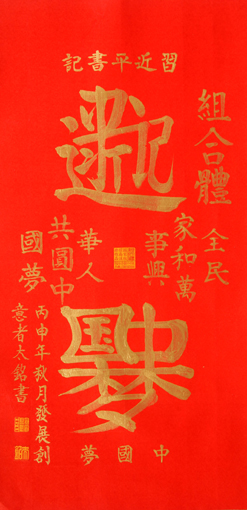 習近平書記
組合體
全民
家和萬
事興
華人
共圓中
國夢
中國夢
丙申年秋月發展創
意者大銘書